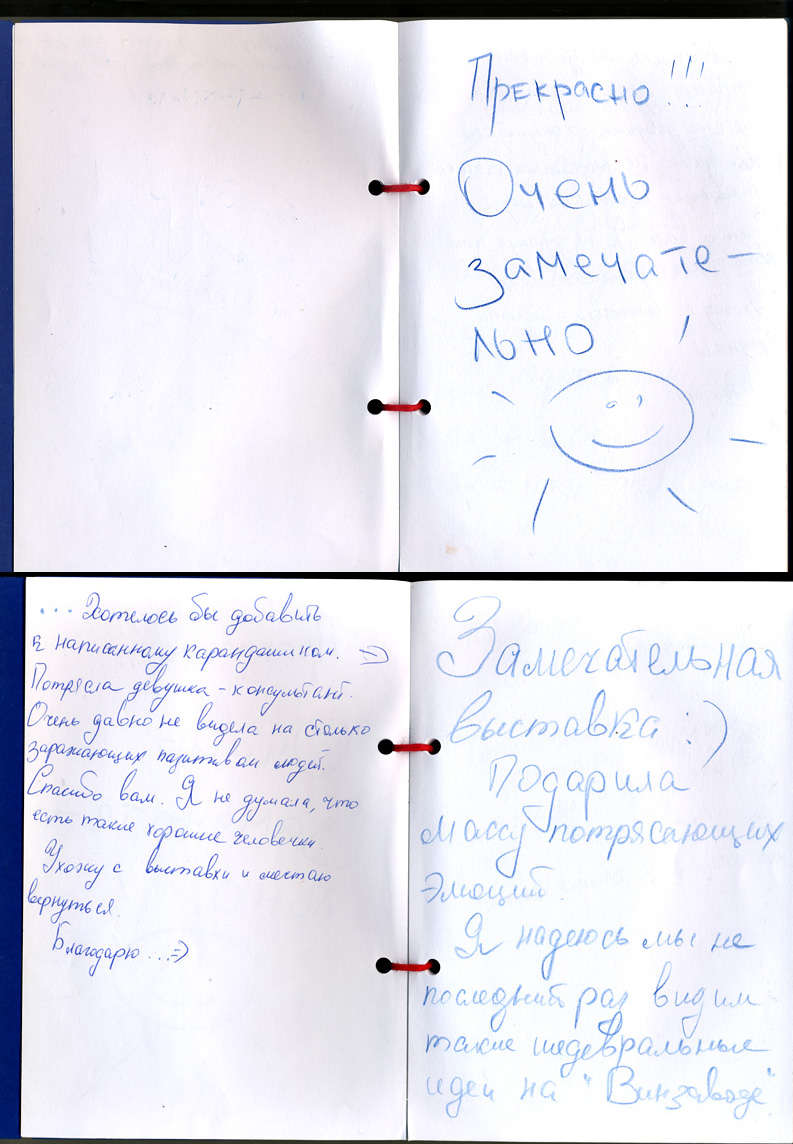 Прекрасно!!!
Очень
замечате-
льно
... Хотелось бы добавить
к написанному карандашиком. =)
Потрясла девушка - консультант.
Очень давно не видела на столько
заражающих пазитивом людей.
Спасибо вам. Я не думала, что
есть такие хорошие человечки.
Ухожу с выставки и мечтаю
вернуться.
Благодарю ...=)
Замечательная
выставка :)
Подарила
массу потрясающих
эмоций.
Я надеюсь мы не
последний раз видим
такие шедевральные
идеи на "Винзаводе"